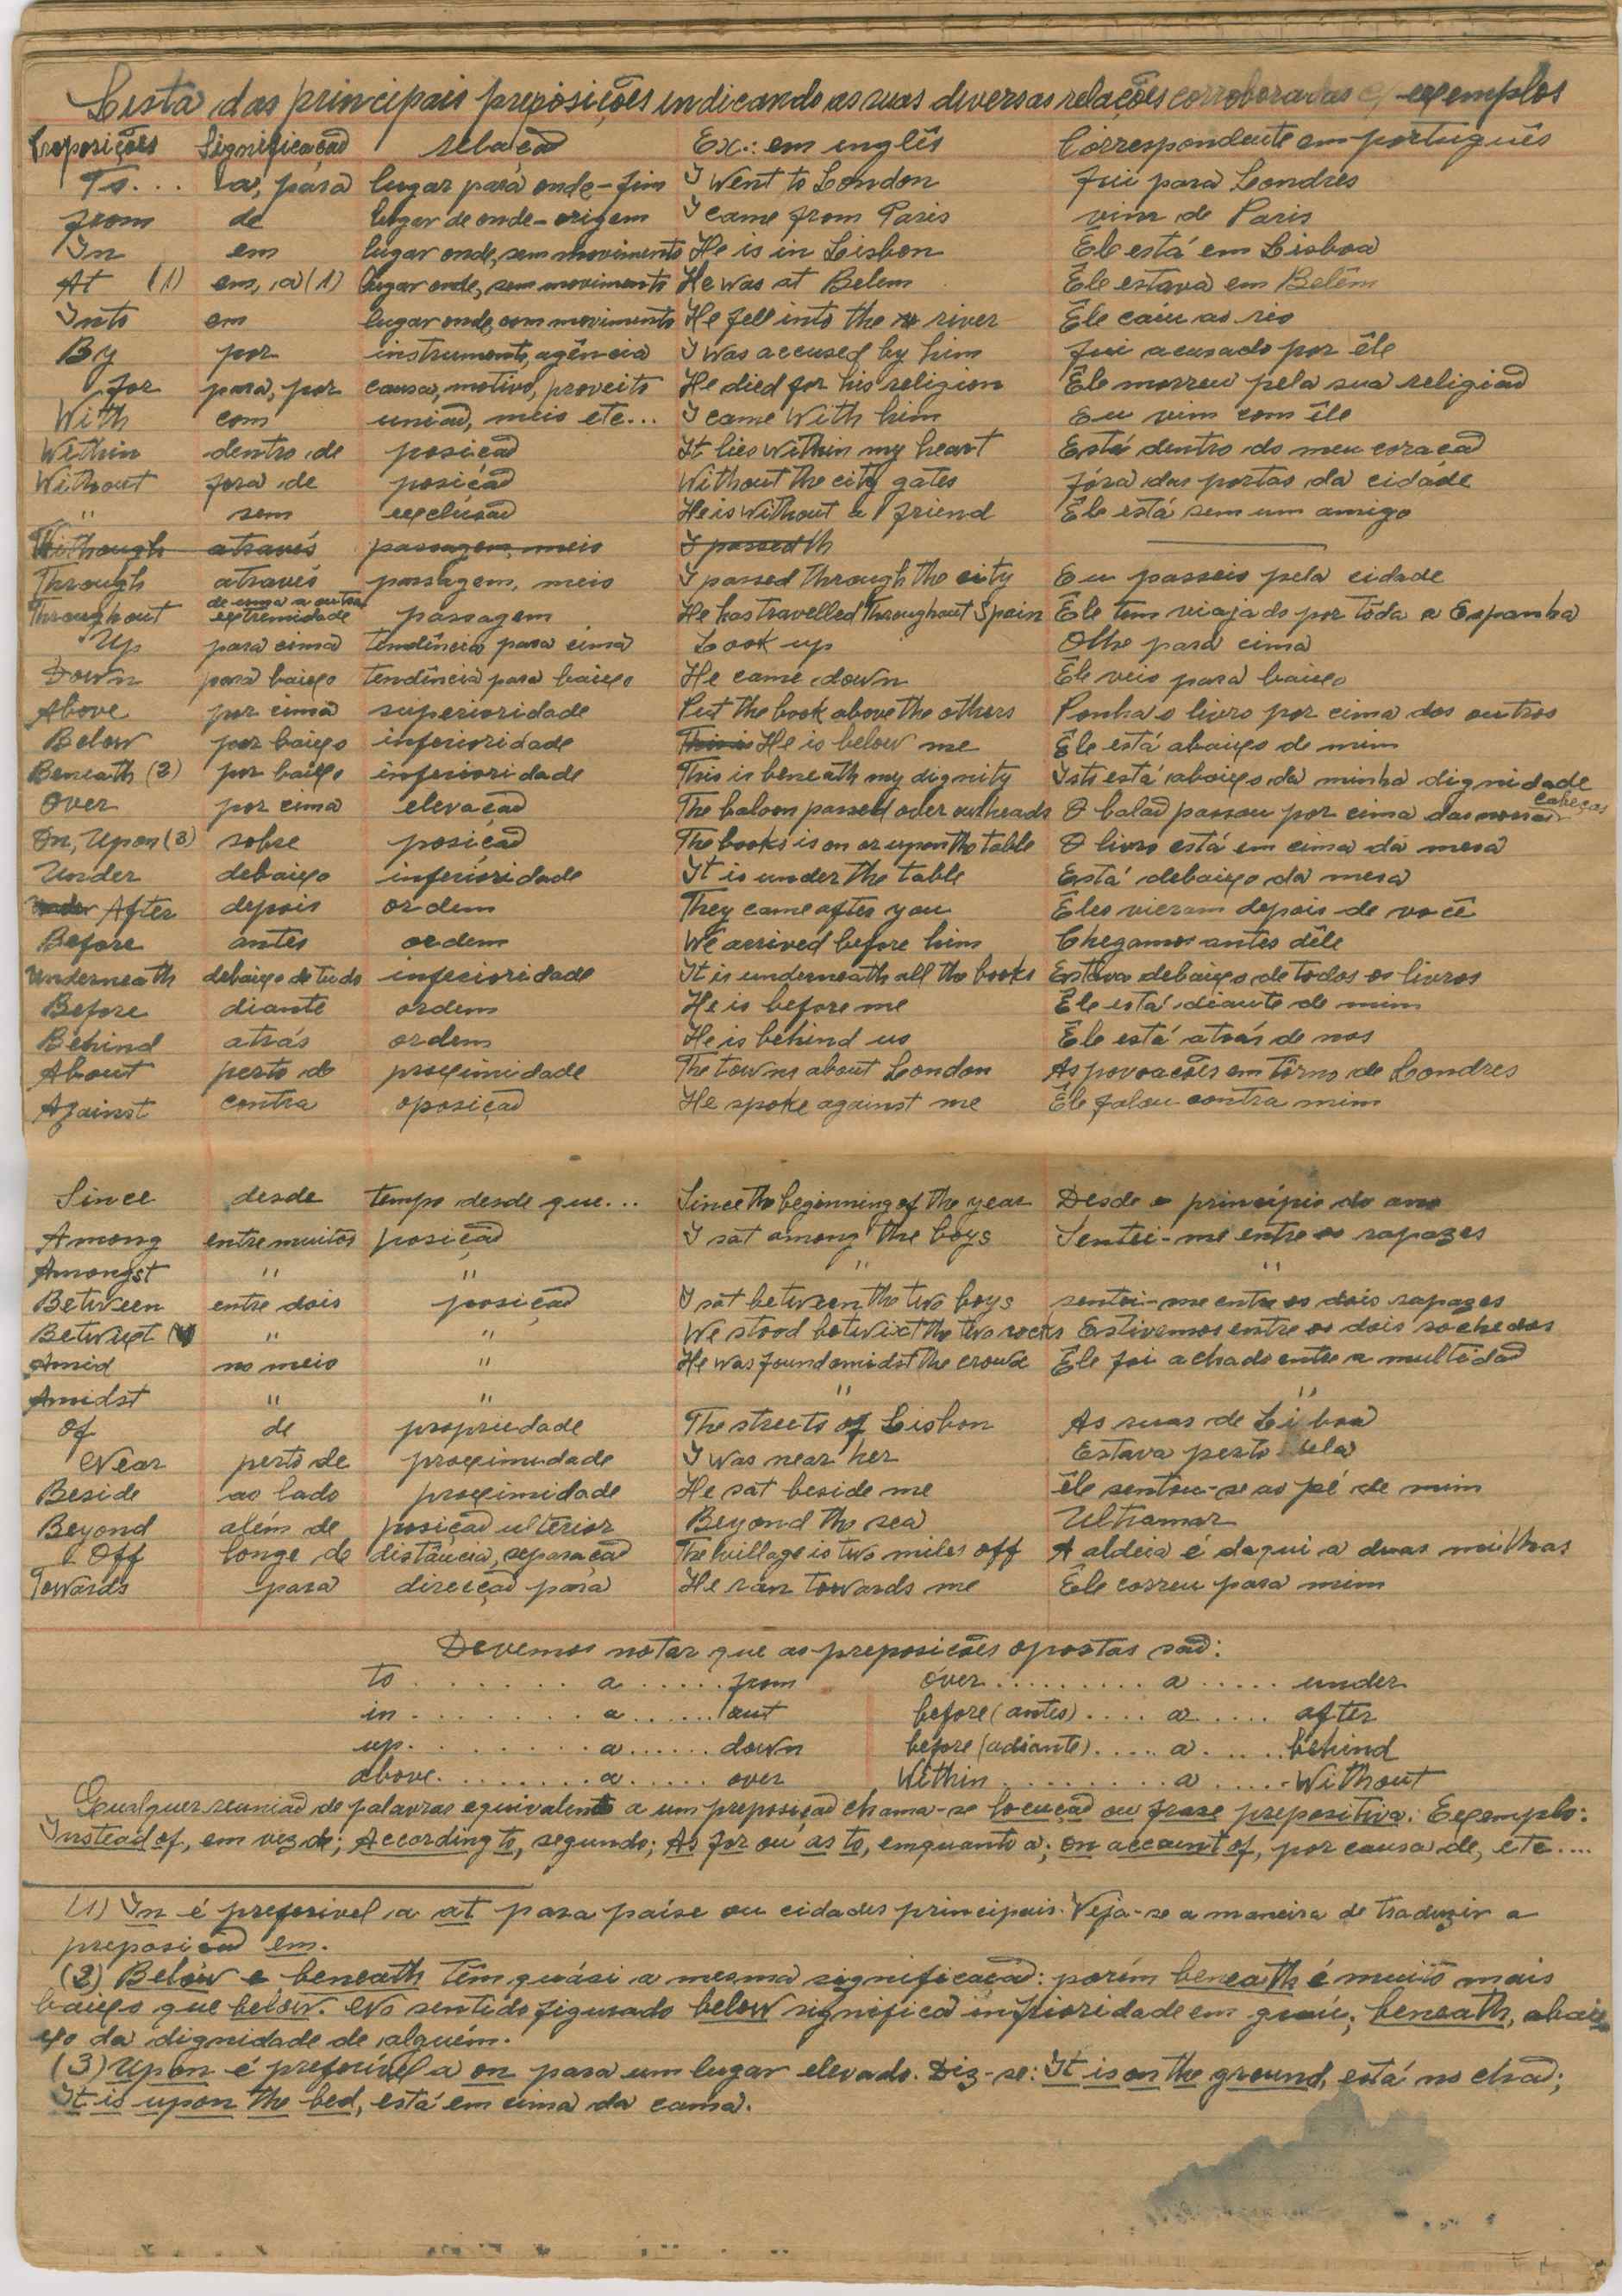 Lista das principais preposições indicando as suas diversas relações corroboradas c/ exemplos
Preposições Significação relação Ex.: em inglês Correspondente em português
To... a, para lugar para onde-fim I went to London Fui para Londres
From de lugar de onde-origem I came from Paris vim de Paris
In em lugar onde, sem movimento He is in Lisbon Êle está em Lisboa
At (1) em, a (1) lugar onde, sem movimento He was at Belem Êle estava em Belêm
Into em lugar onde, com movimento He fell into the river Êle caiu ao rio
By por instrumento, agência I was accused by him fui acusado por êle
for para, por causa, motivo, proveito He died for his religion Êle morreu pela sua religião
With com união, meio etc... I came With him Eu vim com êle
Within dentro de posição It lies within my heart Está dentro do meu coração
Without fora de posição Without the city gates fóra das portas da cidade
" sem exclusão He is without a friend Êle está sem um amigo
Withough através passagem, meio I passed th
Through através passagem, meio I passed through the city Eu passeio pela cidade
Throughout de uma a outra extremidade passagem He has travelled throughout Spain Êle tem viajado por tôda a Espanha
Up para cima tendência para cima Look up Olhe para cima
Down para baixo tendência para baixo He came down Êle veio para baixo
Above por cima superioridade Put the book above the others Ponha o livro por cima dos outros
Below por baixo inferioridade This is He is below me Êle está abaixo de mim
Beneath (2) por baixo inferioridade This is beneath my dignity Isto está abaixo da minha dignidade
Over por cima elevação The baloon passed oder our heads O balão passou por cima das nossas cabeças
On, Upon (3) sobre posição The books is on or upon the table O livro está em cima da mesa
Under debaixo inferioridade It is under the table Está debaixo da mesa
Under After depois ordem They came after you Êles vieram depois de você
Before antes ordem We arrived before him Chegamos antes dêle
Underneath debaixo de tudo inferioridade It is underneath all the books Estava debaixo de todos os livros
Before diante ordem He is before me Êle está diante de mim
Behind atrás ordem He is behind us Êle está atrás de nos
About perto de proximidade The towns about London As povoações em tôrno de Londres
Against contra oposição He spoke against me Êle falou contra mim
Since desde tempo desde que... Since the beginning of the year Desde o princípio do ano
Among entre muitos posição I sat among the boys Sentei-me entre os rapazes
Amongst " " " "
Between entre dois posição I sat between the two boys sentei-me entre os dois rapazes
Betwixt " " We stood betwixt the two rocks Estivemos entre os dois rochedos
Amid no meio " He was found amidst the crowd Êle foi achado entre a multidão
Amidst " " " "
Of de propriedade The streets of Lisbon As ruas de Lisboa
Near perto de proximidade I was near her Estava perto dela
Beside ao lado proximidade He sat beside me êle sentou-se ao pé de mim
Beyond além de posição ulterior Beyond the sea Ultramar
Off longe de distância, separação The village is two miles off A aldeia é daqui a duas milhas
Towards para direição para He ran towards me Êle correu para mim
Devemos notar que as preposições opostas são:
to ....... a ...... from over ......... a ..... under
in ....... a ...... out before (antes) .... a ..... after
up ....... a ...... down before (adiante) .... a ..... behind
above ....... a ...... over Within ......... a ..... Without
Qualquer reunião de palavras equivalente a um preposição chama-se locução ou frase prepositiva. Exemplo:
Instead of, em vez de; According to, segundo; As for ou as to, emquanto a; on account of, por causa de, etc....
(1) In é preferivel a at para paise ou cidades principais. Veja-se a maneira de traduzir a
preposição em.
(2) Below e beneath têm quási a mesma significação: porém beneath é muito mais
baixo que below. No sentido figurado below significa inferioridade em grau; beneath, abai-
xo da dignidade de alguém.
(3) Upon é preferível a on para um lugar elevado. Diz-se: It is on the ground, está no chão;
It is upon the bed, está em cima da cama.